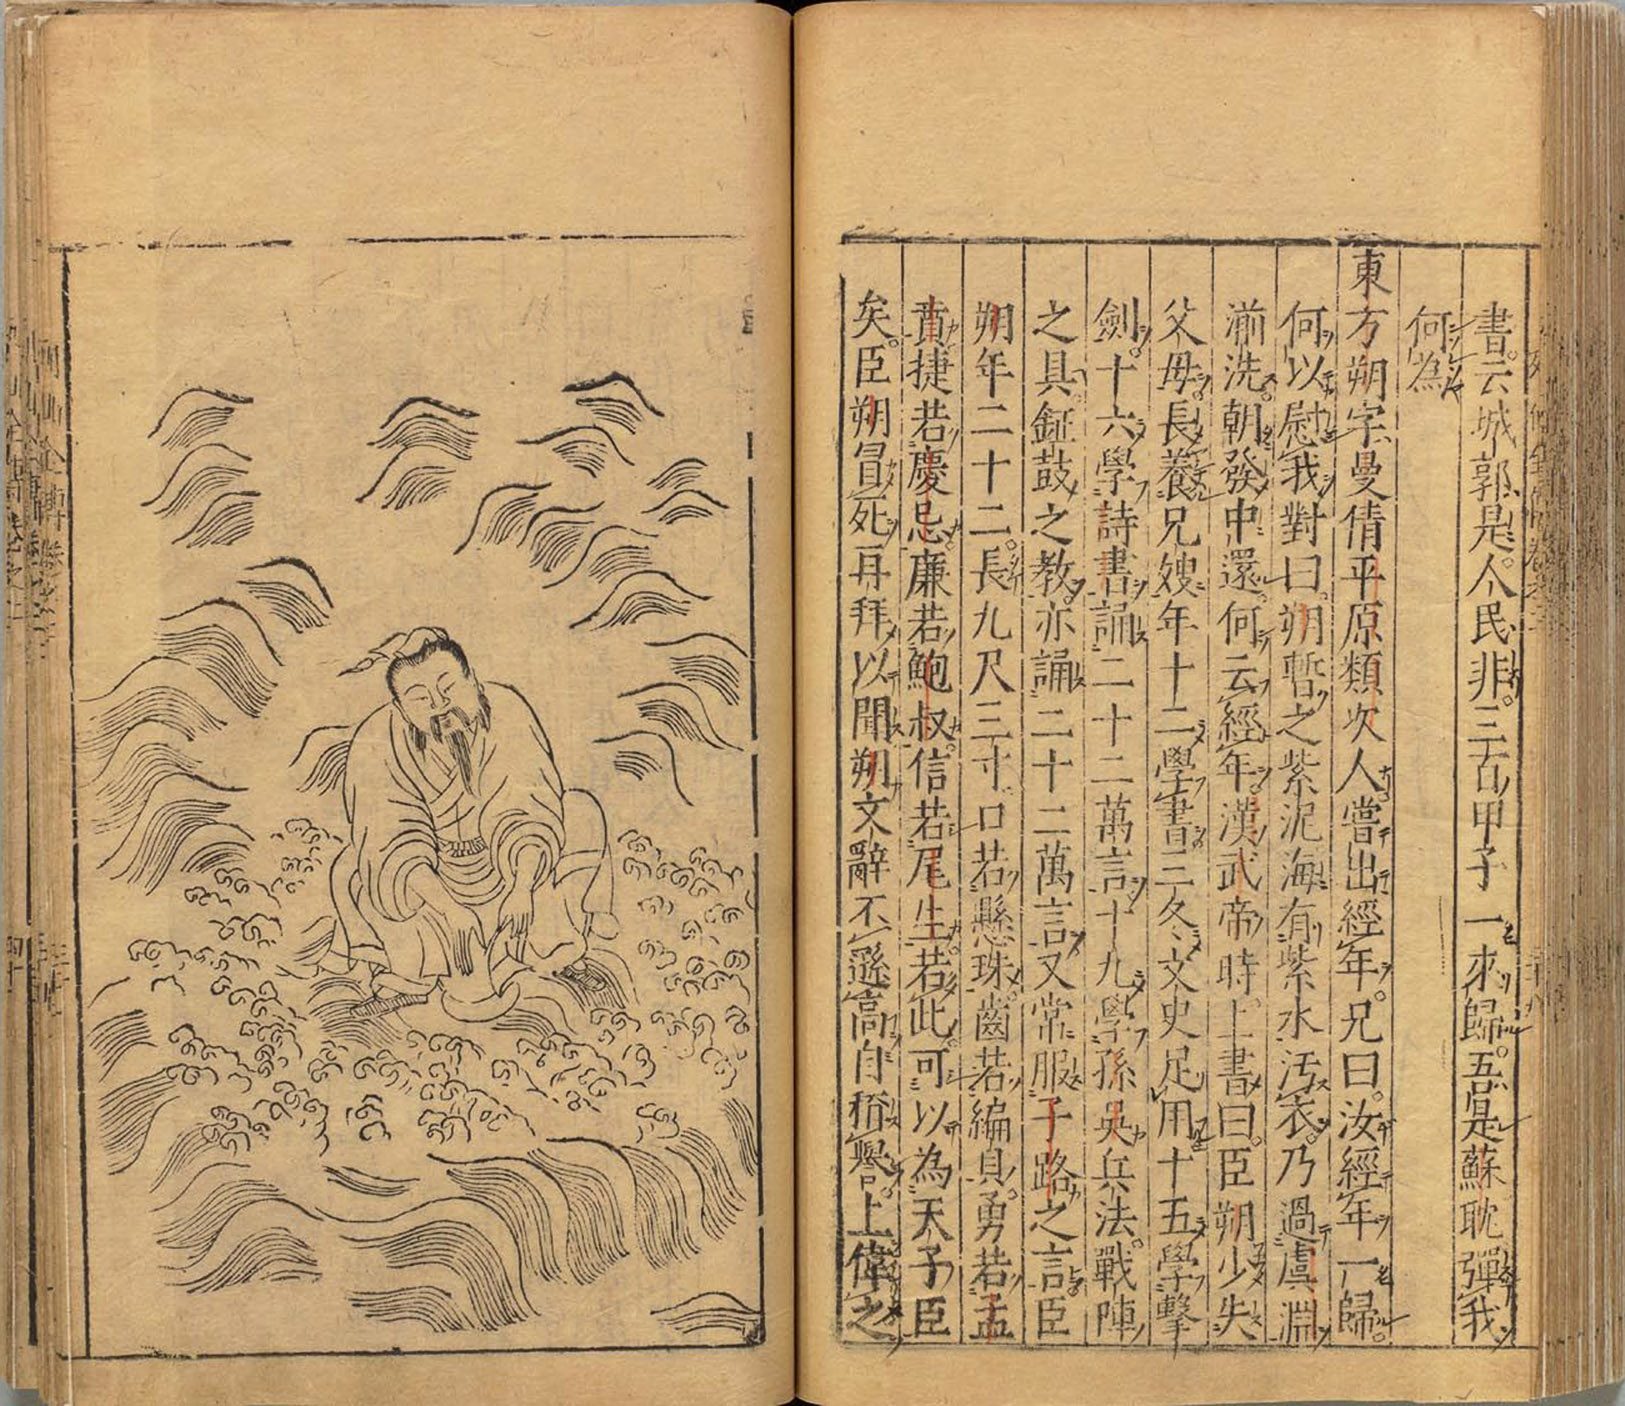 書。云城郭是。人民非。三百甲子一來歸。吾是蘇耽彈我
何為
東方朔字曼倩平原類次人嘗出經年。兄曰。汝經年一歸。
何以慰我對曰。朔暫之紫泥海有紫水汚衣。乃過虞淵
湔洗。朝發中還。何云經年。漢武帝時。上書曰。臣朔少失
父母。長養兄嫂年十二學書三冬文史足用十五學擊
劍。十六學詩書誦二十二萬言十九學孫吳兵法。戰陣
之具。鉦鼓之教。亦誦二十二萬言又常服子路之言臣
朔年二十二。長九尺三寸口若懸珠。齒若編貝。勇若孟
賁捷若慶忌廉若鮑叔信若尾生若此。可以為天子臣
矣。臣朔冒死再拜以聞朔文辭不遜高自稱譽。上偉之